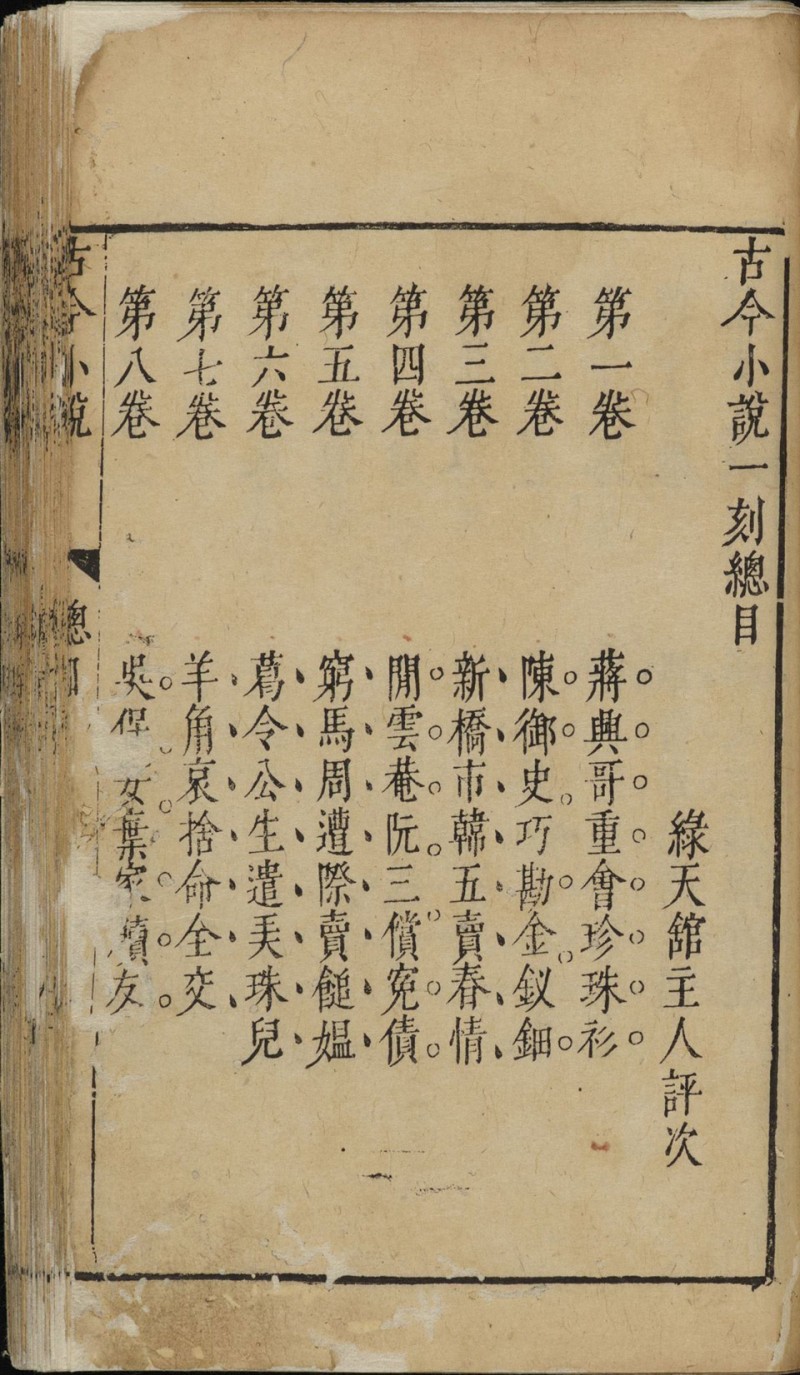 古今小說一刻總目
綠天舘主人評次
第一卷 蔣興哥重會珍珠衫
第二卷 陳御史巧勘金釵鈿
第三卷 新橋市韓五賣春情
第四卷 閒雲菴阮三償寃債
第五卷 窮馬周遭際賣䭔媼
第六卷 葛令公生遣弄珠兒
第七卷 羊角哀捨命全交
第八卷 吳保安棄家贖友
古今小說 總目